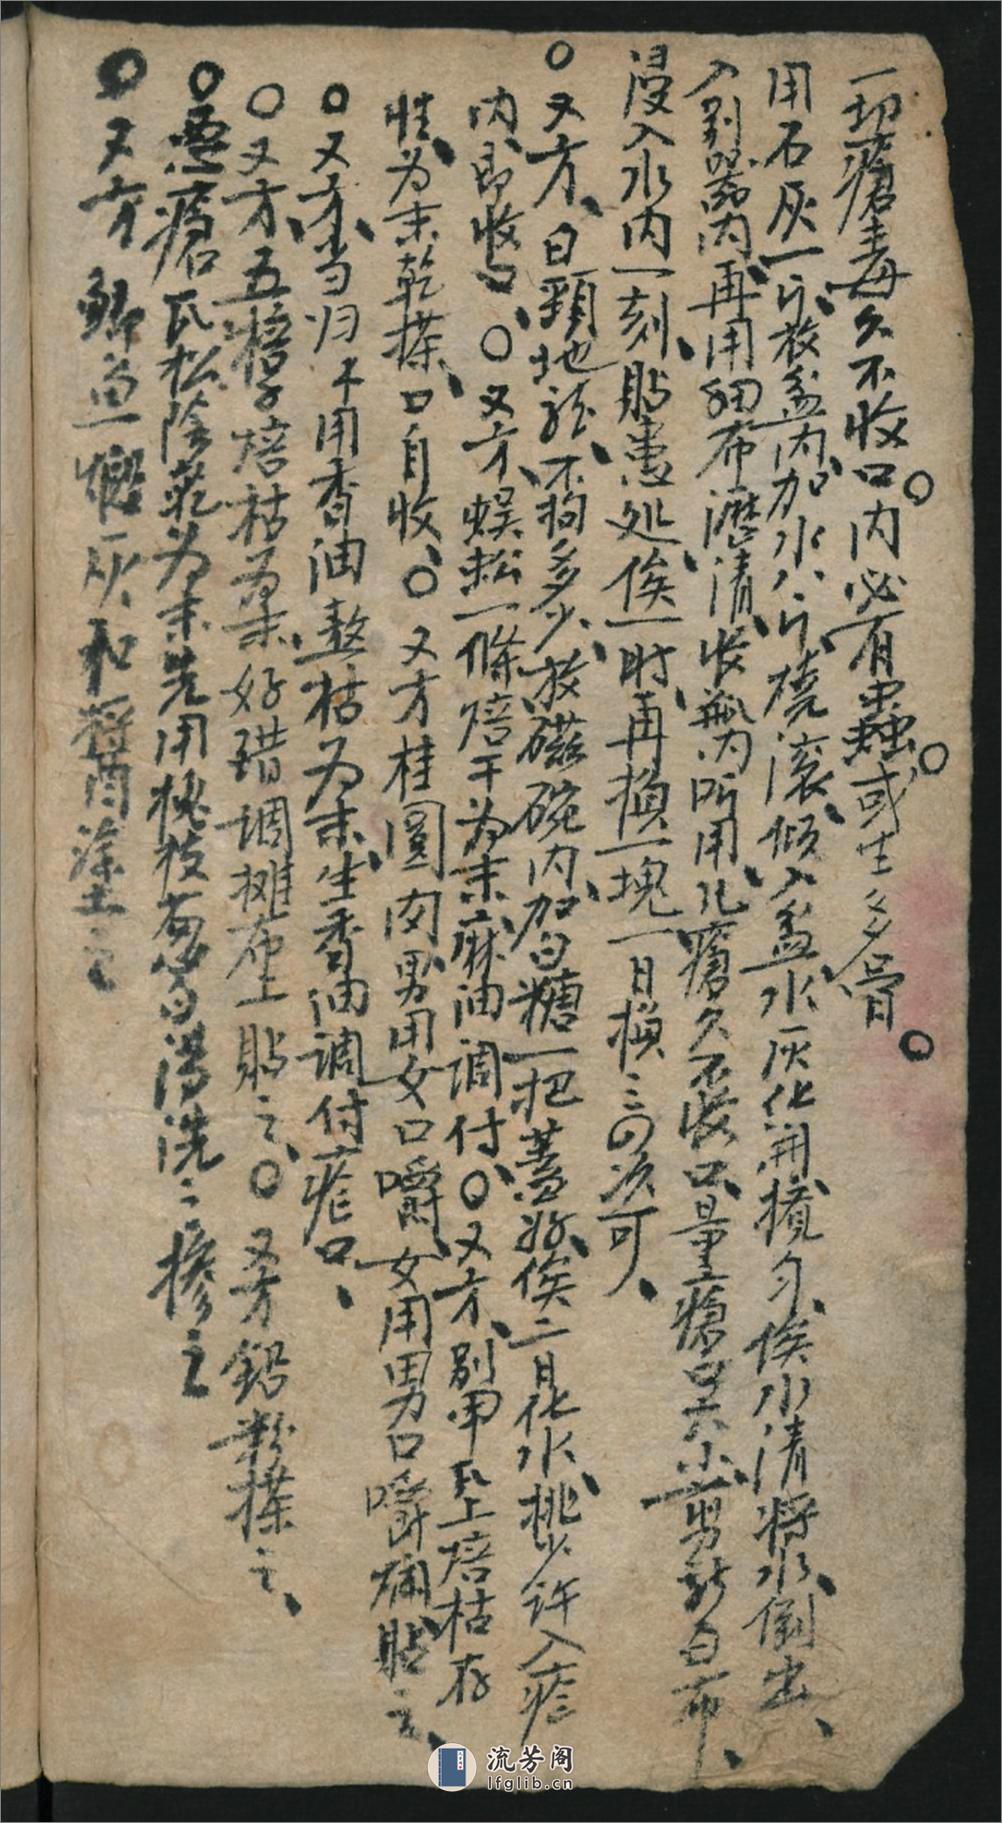 一切瘡毒久不收口。内必有虫蟲。或生多骨。
用石灰一斤、放盆内、加水八斤、燒滚、倾入盆水灰化開攪匀、俟水清将水倒出、
入别器内、再用細布瀝清、收瓶内听用、凡瘡久不收口、量瘡口大小、剪新白布、
浸入水内一刻、貼患处、俟一时、再换一塊、一日换三四次可、
○又方、白頸地龙、不拘多少、放磁碗内、加白糖一把、蓋好、俟二日化水、挑少许入疮
内、即收口、○又方、蜈蚣一條焙干为末、麻油調付○又方、别甲瓦上焙枯存
性、为末乾搽、口自收、○又方桂圓肉男用女口嚼、女用男口嚼爛貼之、
○又方、当归不用香油熬枯为末、生香油調付疮口、
○又方、五棓子焙枯为末、好醋調摊布上貼之、○又方鉛粉搽之、
○恶瘡瓦松陰乾为末先用槐枝葱白湯洗二摻之
○又方 鲫鱼一燬灰和酱涂之
流芳阁
lfglib.cn